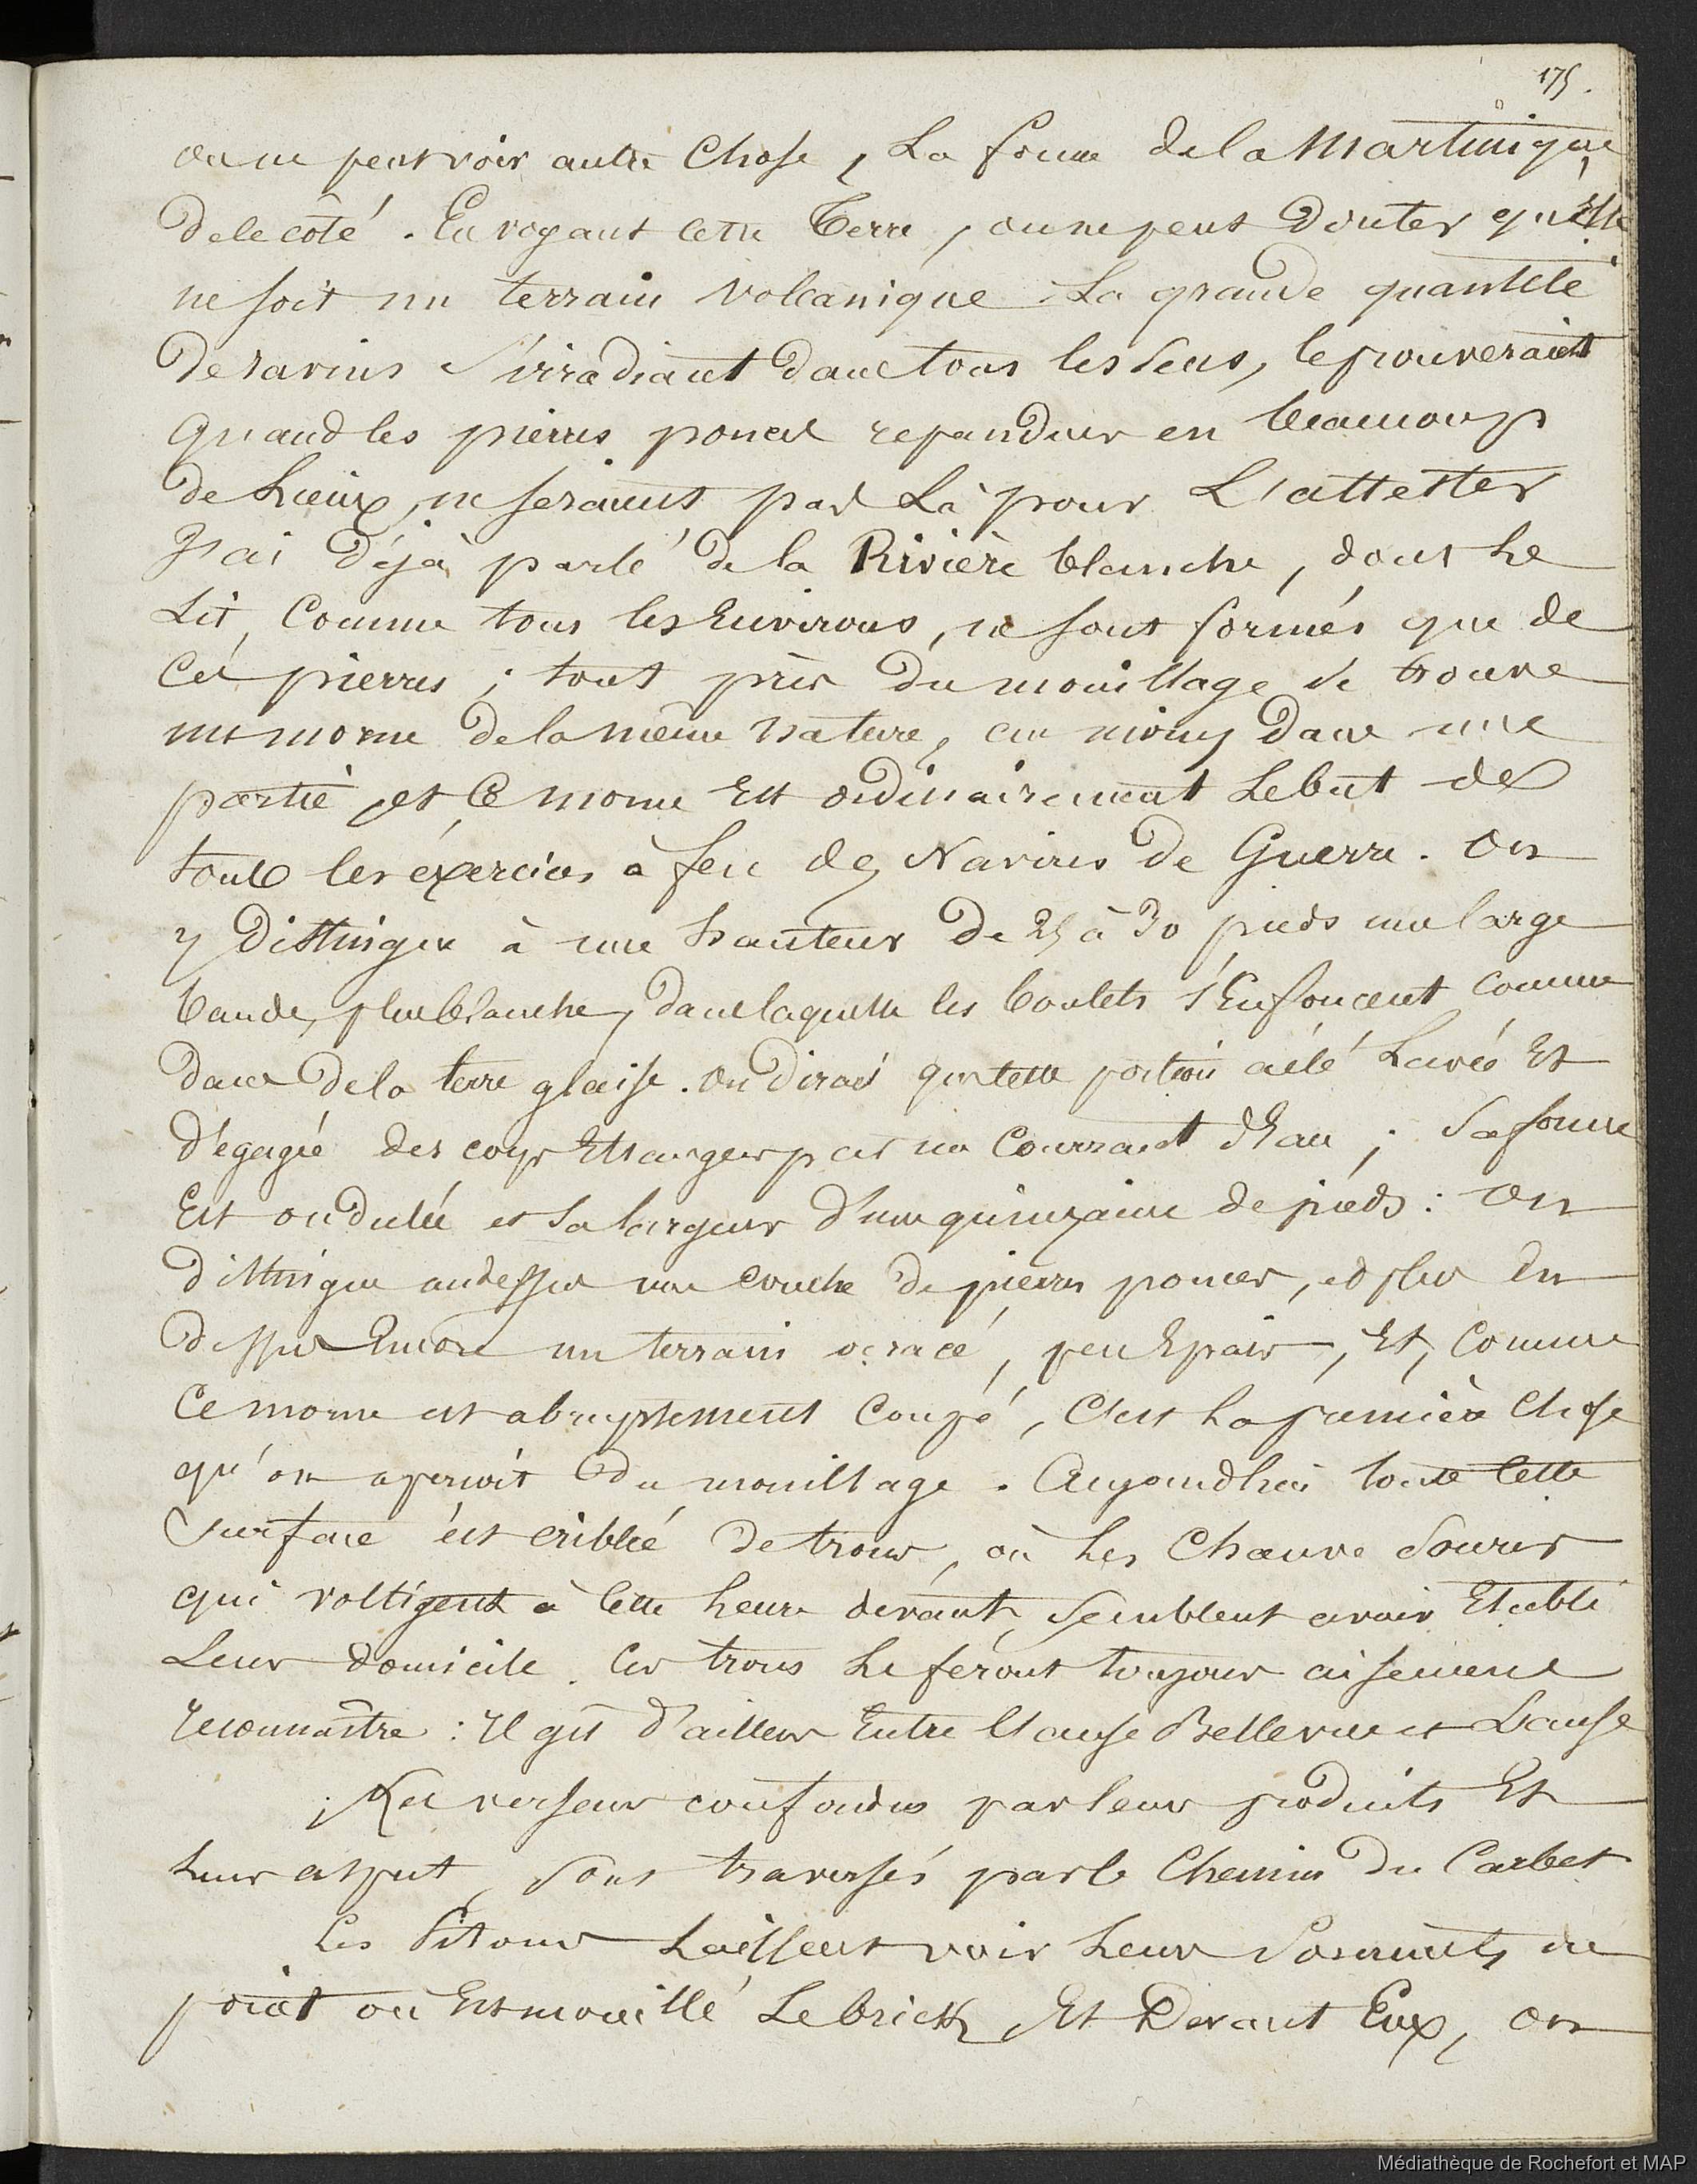 175.
on ne peut voir autre Chose, La forme de la Martinique
de ce côté. En voyant cette Terre, on ne peut Douter qu'Elle
ne soit un terrain volcanique. La grande quantité
De ravins s'irradiant dans tous les sens, le prouveraient
quand les pierres ponces repandues en beaucoup
de Lieux, ne seraient pas Là pour L'attester
J'ai Déjà parlé de la Rivière blanche, dont Le
Lit, Comme tous les Environs, ne sont formés que de
Ces pierres ; tout près Du mouillage se trouve
un morne de la même Nature, au moins dans une
partie, et Ce morne Est ordinairement Le but de
toutes les éxercices à feu des Navires de Guerre. On
y Distingue à une hauteur De 25 à 30 pieds une large
bande, plus blanche, dans laquelle les boulets s'Enfoncent Comme
dans De la terre glaise. On Dirait que cette portion a été Lavée Et
D'égagée des corps Etrangers par un Courrant d'Eau ; Sa forme
Est ondulée et sa largeur d'une quinzaine de pieds : On
Distingue au dessus une couche De pierres ponces, et plus En
Dessus Encore un terrain ocracé, peu Epais, Et, Comme
Ce morne est abruptement Coupé, C'est La première Chose
qu'on aperçoit Du mouillage. Aujourdhui toute Cette
Surface est criblée De trous, où Les Chauve Souris
qui voltigent à Cette heure devant, Semblent avoir Etabli
Leur domicile. Ces trous Le feront toujours aisement
reconnaître : Il gît d'ailleurs Entre L'anse Bellevue et L'anse
Les verseurs confondus par leurs produits Et
Leur aspect, Sont traversés par le Chemin Du Carbet
Les Pitons Laissent voir Leurs Sommets du
point où Est mouillé Le brick, Et Devant Eux, on
Médiathèque de Rochefort et MAP